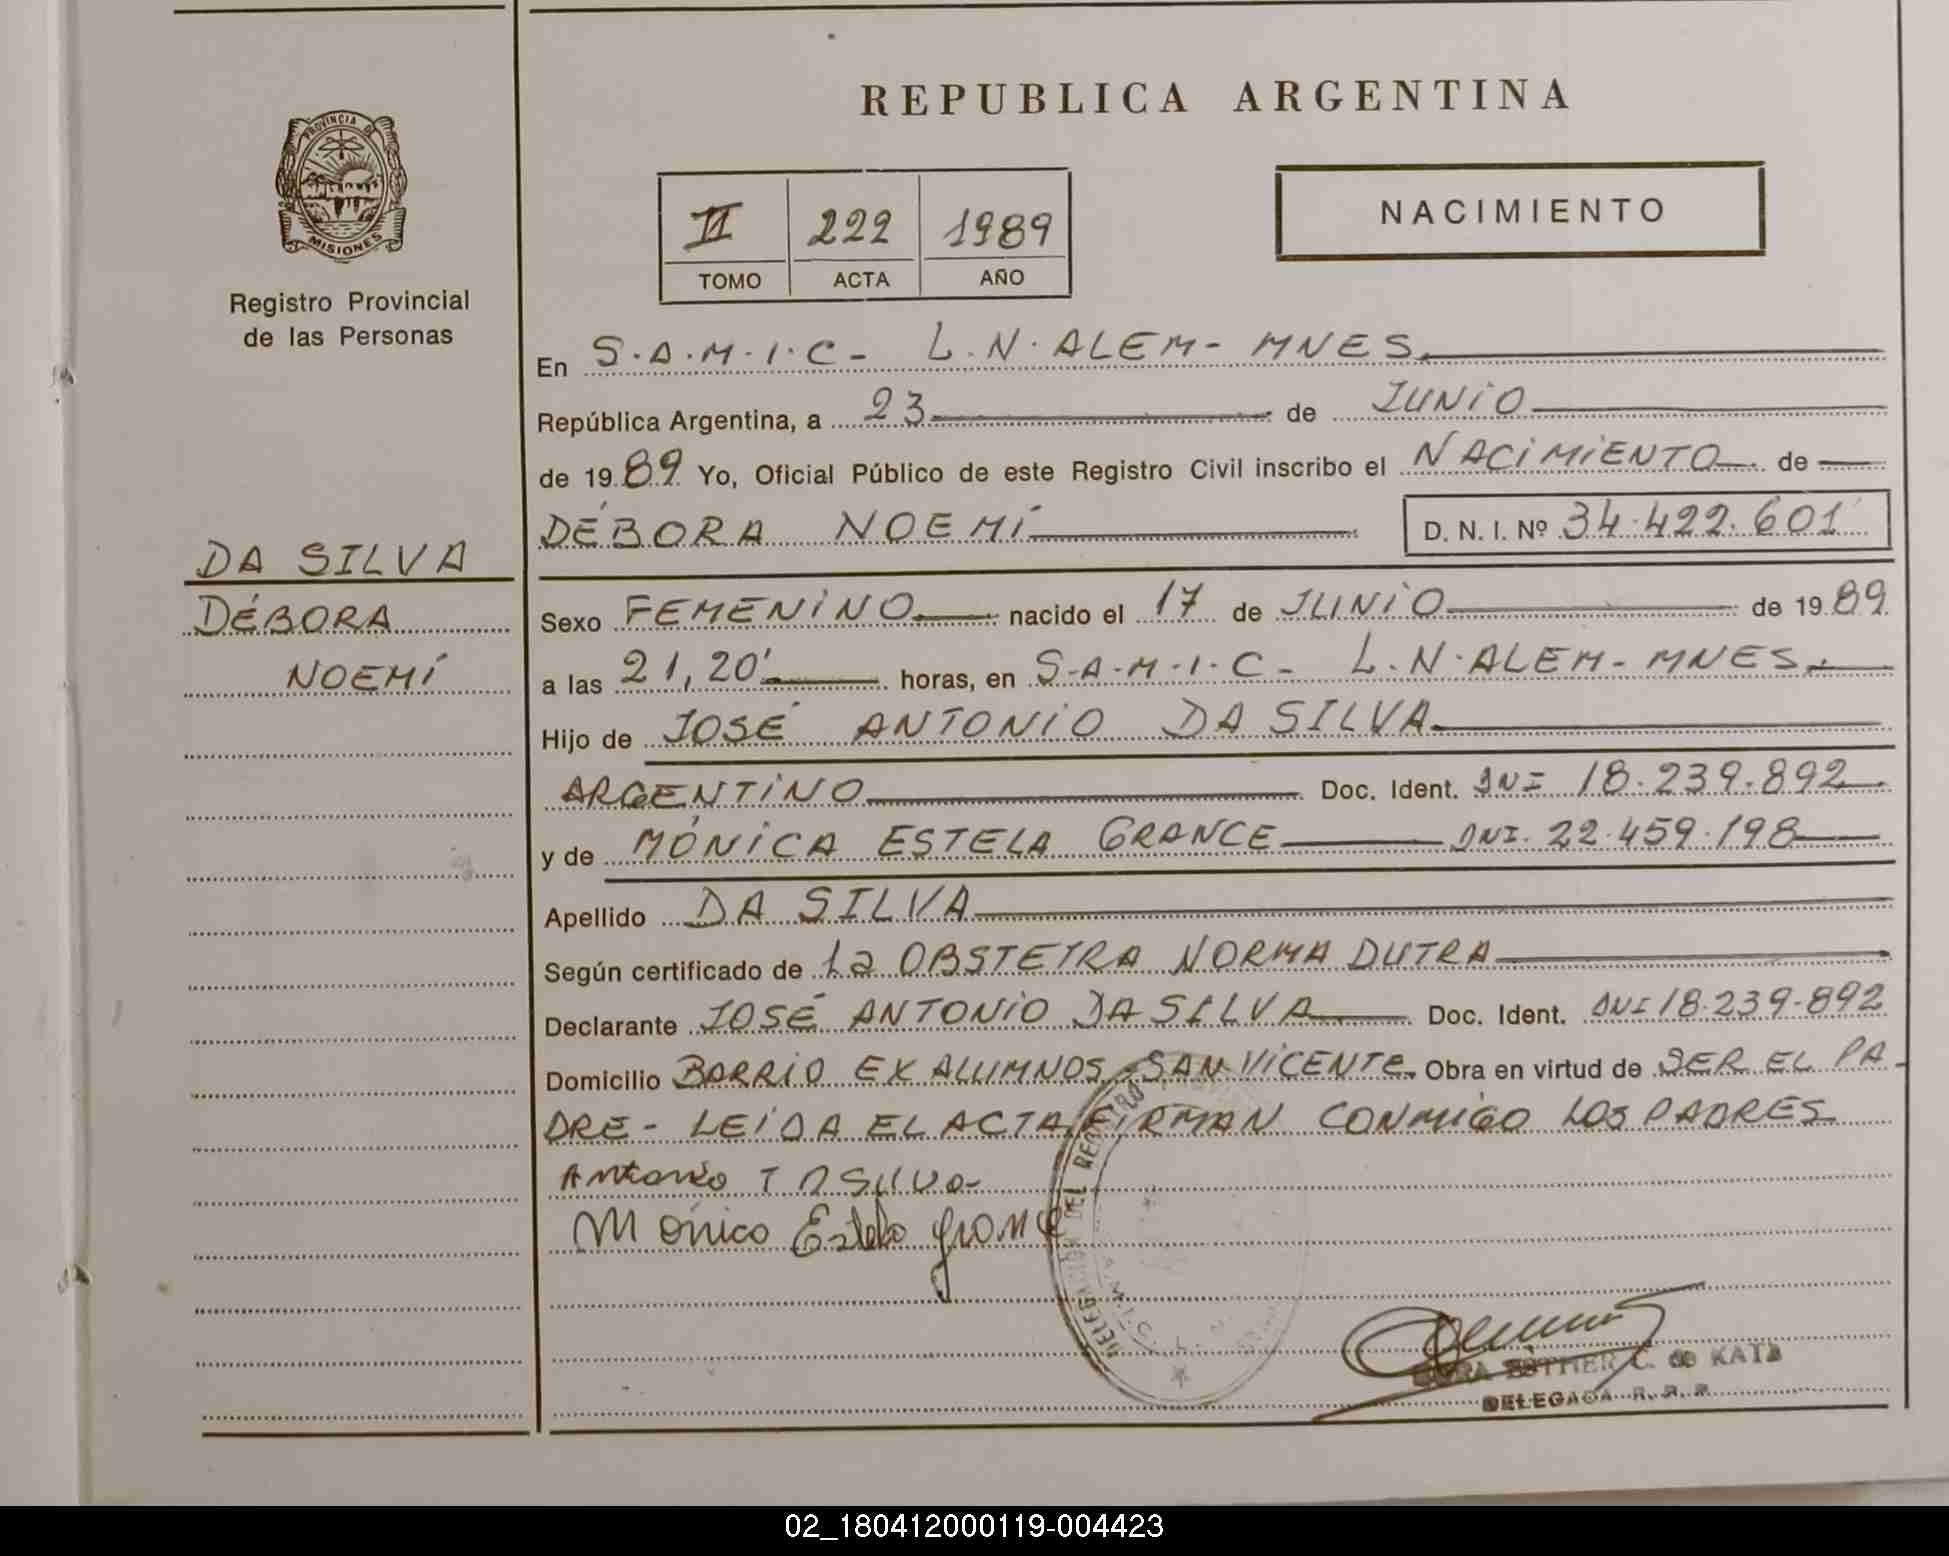 REPUBLICA ARGENTINA
PROVINCIA DE
MISIONES
Registro Provincial
de las Personas
II 222 1989
TOMO ACTA AÑO
NACIMIENTO
DA SILVA
DÉBORA
NOEMÍ
En S.A.M.I.C- L.N.ALEM- MNES.
República Argentina, a 23 de JUNIO
de 1989 Yo, Oficial Público de este Registro Civil inscribo el NACIMIENTO de
DÉBORA NOEMÍ D. N. I. Nº 34.422.601
Sexo FEMENINO nacido el 17 de JUNIO de 1989
a las 21,20' horas, en S-A-M-I-C- L.N.ALEM- MNES.
Hijo de JOSÉ ANTONIO DA SILVA
ARGENTINO Doc. Ident. DNI 18.239.892
y de MÓNICA ESTELA GRANCE DNI. 22.459.198
Apellido DA SILVA
Según certificado de La OBSTETRA NORMA DUTRA
Declarante JOSÉ ANTONIO DA SILVA Doc. Ident. DNI 18.239-892
Domicilio BARRIO EX ALUMNOS - SAN VICENTE. Obra en virtud de SER EL PA-
DRE - LEÍDA EL ACTA FIRMAN CONMIGO LOS PADRES
Antonio Silva
Mónica Estela Grance
DELEGACIÓN DEL REGISTRO
ESTHER C. de KATZ
DELEGADA R. P. P.
02_180412000119-004423